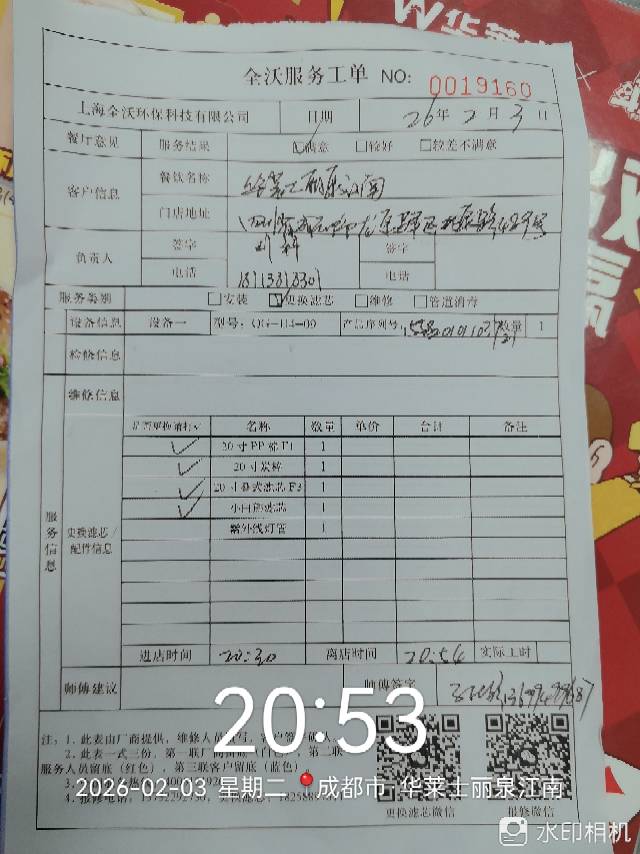 华莱士
全沃服务工单 NO: 0019160
上海全沃环保科技有限公司 日期 26年2月3日
餐厅意见 服务结果 ☑满意 ☐较好 ☐较差不满意
客户信息 餐饮名称 华莱士丽泉江南
门店地址
负责人 签字 签字
电话 电话
服务类别 ☐安装 ☑更换滤芯 ☐维修 ☐管道消毒
设备信息 设备一 型号：QG-H4-09 产品序列号 数量 1
检修信息
维修信息
是否更换请打√ 名称 数量 单价 合计 备注
✓ 20寸PP棉F1 1
✓ 20寸炭棒 1
✓ 20寸叠式滤芯F3 1
✓ 1
紫外线灯管 1
服务信息 更换滤芯/配件信息
进店时间 20:30 离店时间 20:54 实际工时
师傅建议 师傅签字
注：1. 此表由厂商提供，维修人员填写，
2. 此表一式三份，第一联厂商留底 第二联
服务人员留底（红色），第三联客户留底（蓝色）
更换滤芯微信 报修微信
20:53
2026-02-03 星期二 成都市·华莱士丽泉江南
水印相机